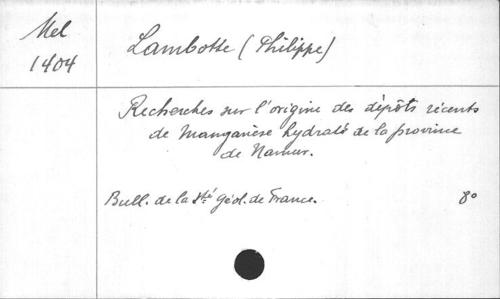 Mel
1404
Lambotte (Philippe)
Recherches sur l'origine des dépôts récents
de Manganèse hydraté de la province
de Namur.
Bull. de la Sté Géol. de France. 8o